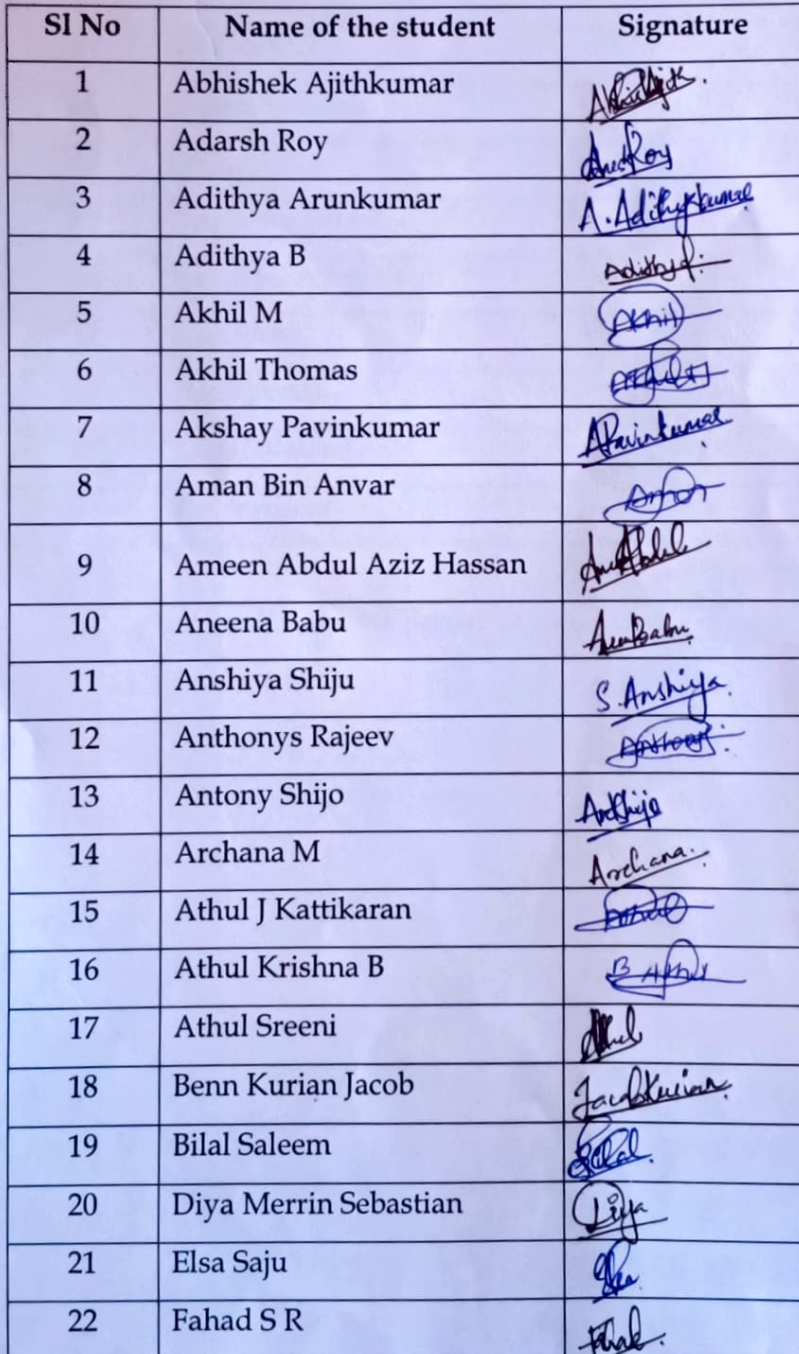 Sl No Name of the student Signature
1 Abhishek Ajithkumar
2 Adarsh Roy
3 Adithya Arunkumar A. Adithykumar
4 Adithya B Adithya
5 Akhil M Akhil
6 Akhil Thomas
7 Akshay Pavinkumar APavinkumar
8 Aman Bin Anvar
9 Ameen Abdul Aziz Hassan
10 Aneena Babu
11 Anshiya Shiju S. Anshiya.
12 Anthonys Rajeev
13 Antony Shijo
14 Archana M Archana.
15 Athul J Kattikaran
16 Athul Krishna B
17 Athul Sreeni
18 Benn Kurian Jacob JacobKurian
19 Bilal Saleem Bilal.
20 Diya Merrin Sebastian Diya
21 Elsa Saju
22 Fahad S R